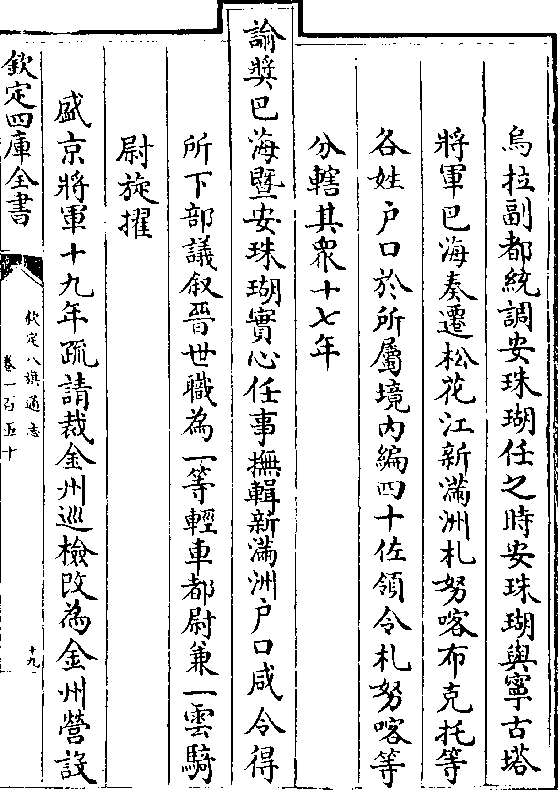 烏拉副都統調安珠瑚任之時安珠瑚與寧古塔
將軍巴海奏遷松花江新滿洲札努喀布克托等
各姓户口於所屬境内編四十佐領令札努喀等
分轄其衆十七年
諭奬巴海暨安珠瑚實心任事撫輯新滿洲户口咸令得
所下部議叙晉世職為一等輕車都尉兼一雲騎
尉旋擢
盛京將軍十九年疏請裁金州巡檢改為金州營設
欽定四庫全書
欽定八旗通志
卷一百五十
十九